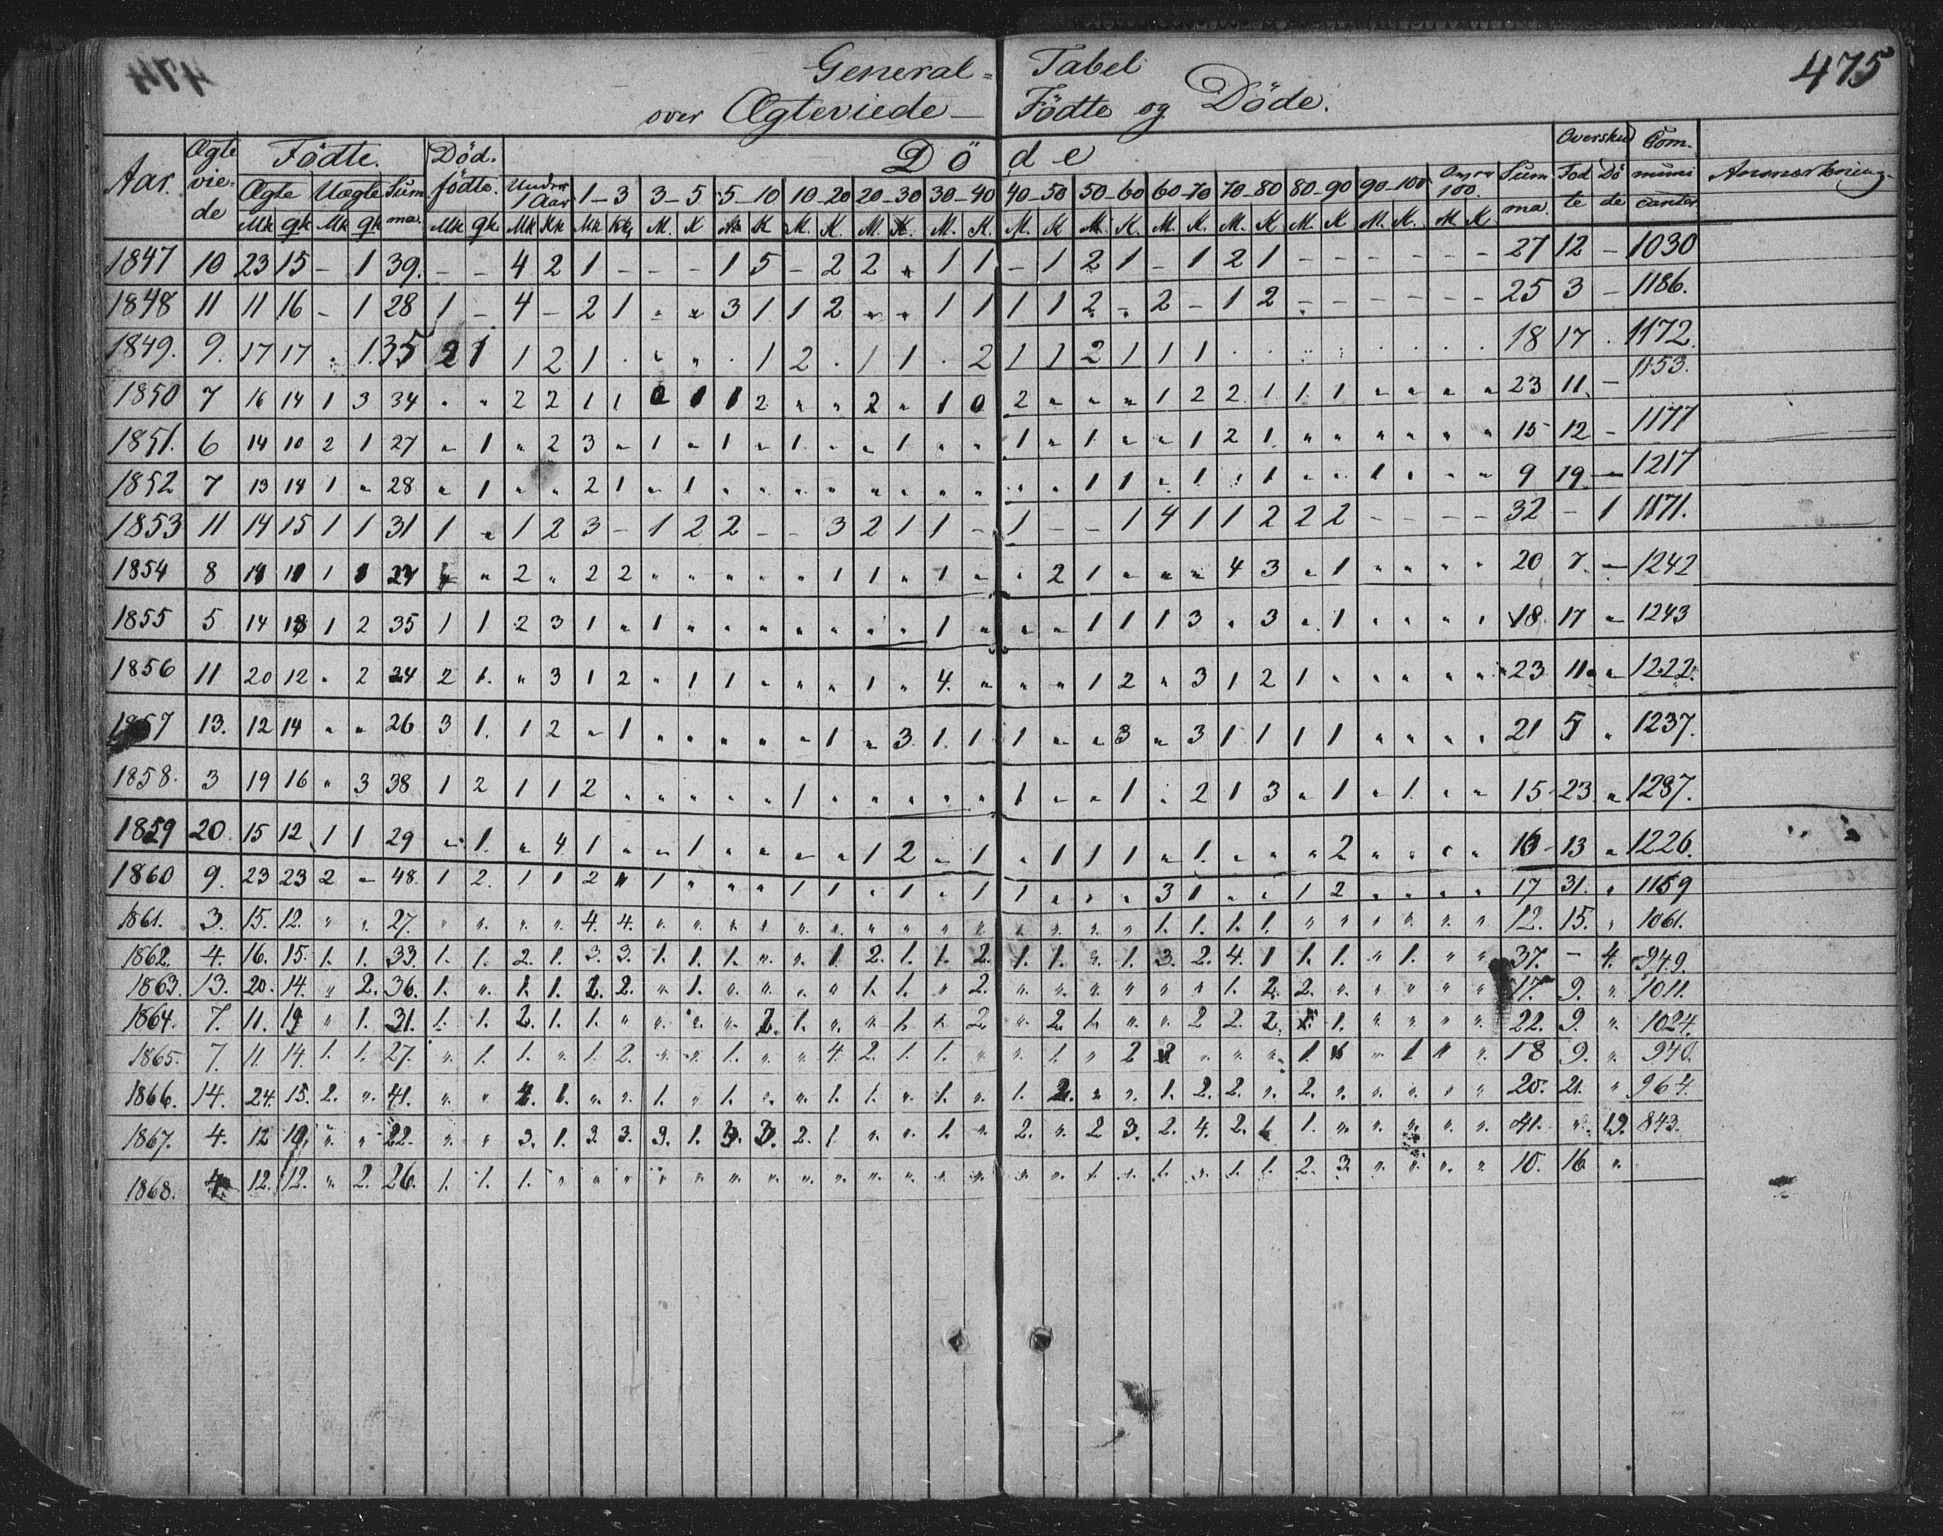 474
475
General- Tabel
over Ægteviede - Födte og Döde.
Aar. Ægteviede Födte. Dödfödte. Döde Overskud Communicanter Anmærkning
Ægte Uægte Summa. Under 1 Aar 1-3 3-5 5-10 10-20 20-30 30-40 40-50 50-60 60-70 70-80 80-90 90-100 Over 100. Summa. Fodte Döde
Mk Qk Mk Qk Mk Qk Mk Kk Mk Kk M. K M. K M. K. M. K. M. K. M. K M. K. M. K. M. K M. K M. K. M K
1847 10 23 15 - 1 39. - - 4 2 1 - - - 1 5 - 2 2 " 1 1 - 1 2 1 - 1 2 1 - - - - - - 27 12 - 1030
1848 11 11 16 - 1 28 1 - 4 - 2 1 " " 3 1 1 2 " " 1 1 1 1 2 " 2 - 1 2 - - - - - - 25 3 - 1186.
1849. 9. 17 17 . 1. 35 2 1 1 2 1 . " " . 1 2 . 1 1 . 2 1 1 2 1 1 1 . . . . . . . . 18 17 . 1172.
1850 7 16 14 1 3 34 " " 2 2 1 1 0 1 1 2 " " 2 " 1 0 2 " " " 1 2 2 1 1 1 " " " " 23 11. - 1153.
1851. 6 14 10 2 1 27 " 1 " 2 3 " 1 " 1 " 1 " " 1 " " 1 " 1 " " 1 2 1 " " " " " " 15 12 - 1177
1852 7 13 14 1 " 28 " 1 " " 2 1 " 1 " " " " " " " " " " 1 1 " 1 " 1 " " 1 " " " 9 19. - 1217
1853 11 14 15 1 1 31 1 " 1 2 3 - 1 2 2 - - 3 2 1 1 - 1 - - 1 4 1 1 2 2 2 - - - - 32 - 1 1171.
1854 8 1 " 2 " 2 2 " " " " " 1 1 " 1 " " 2 1 " " " 4 3 " 1 " " " " 20 7. - 1242
1855 5 14 18 1 2 35 1 1 2 3 1 " 1 " " " " " " " 1 " " " 1 1 1 3 " 3 " 1 " " " " 18. 17 " 1243
1856 11 20 12 " 2 34 2 1. " 3 1 2 " 1 1 " " " 1 " 4. " " " 1 2 " 3 1 2 1 " " " " " 23 11 " 1222.
1857 13. 12 14 " " 26 3 1. 1 2 " 1 " " " " " 1 " 3 1. 1 1 " " 3 " 3 1 1 1 1 " " " " 21 5 " 1237.
1858. 3 19 16 " 3 38 1 2 1 1 2 " " " " " 1 " " " " " 1 " " 1 " 2 1 3 " 1 " 1 " " 15 23 " 1287.
1859 20. 15 12 1 1 29 " 1. " 4 1 " " 1 " " " " 1 2 " 1 " 1 1 1 " 1. " " " 2 " " " " 16 13 " 1226.
1860 9. 23 23 2 " 48. 1 2. 1 1 2 " 1 " " " 1 1 " 1 " 1 1 " " " 3 1 " " 1 2 " " " " 17 31. " 1159
1861. 3. 15. 12. " " 27. " " " " 4. 4. " " " " " " " " " " " " " " 1. 1. 1. 1. " " " " " " 12. 15. " 1061.
1862. 4. 16. 15. 1. 1. 33. 1. 1. 2. 1. 3. 3. 1. 1. 1. " " 1 2. 1. 1. 2. 1. 1. " 1. 3. 2. 4. 1 1. 1. " 1. " " 37. - 4. 949.
1863. 13. 20. 14. " 2. 36. 1. " 1. 1. 2. 2. " 1. " " " " 1. 1. " 2. " " " " " " 1. 2. 2. " " " " " 17. 9. " 1011.
1864. 7. 11. 19 " 1. 31. 1. 1. 2. 1. 1. " " " " 2. 1. " " 1. 1. 2. " 2. 1. " " 2 2. 2. 1. 1. " " " " 22. 9. " 1024.
1865. 7. 11. 14. 1. 1. 27. " 1. 1. " 1. 2. " " 1. " " 4. 2. 1. 1. " " 1. " 2 " " " " 1. " 1 " " 18 9. " 940.
1866. 14. 24. 15. 2. " 41. " " 4. 1. " " 1. " 1. " " 1. 1. " 1. " 1. 2. " " 1. 2. 2. " 2. " " " " " 20. 21. " 964.
1867. 4. 12 19. " " 22. " " 3. 1. 3. 3. 3. 1. 3. 3. 2. 1. " " 1. " 2. " 2 3. 2. 4. 2. 1. 1. " " " " " 41. " 19. 843.
1868. 4. 12. 12. " 2. 26. 1. 1. 1. " " " " " " " " " " " " " " " 1. 1. 1. " 1. 1. 2. 3. " " " " 10. 16. "